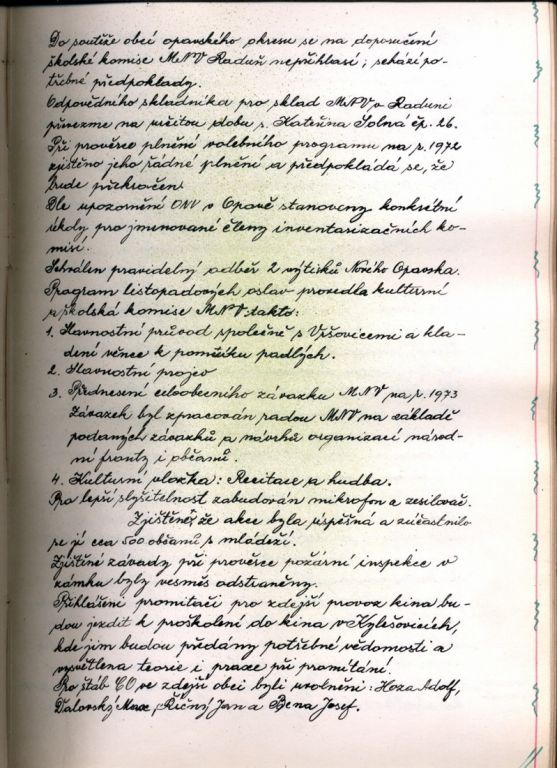 Do soutěže obcí opavského okresu se na doporučení
školské komise MNV Raduň nepřihlásí; schází po-
třebné předpoklady.
Odpovědného skladníka pro sklad MNV v Raduni
převezme na určitou dobu s. Kateřina Solná čp. 26.
Při prověrce plnění volebního programu na r. 1972
zjištěno jeho řádné plnění a předpokládá se, že
bude překročen
Dle upozornění ONV v Opavě stanoveny konkrétní
úkoly pro jmenované členy inventarizačních ko-
misí.
Schválen pravidelný odběr 2 výtisků Nového Opavska.
Program listopadových oslav provedla kulturní
a školská komise MNV takto:
1. Slavnostní průvod společně s Vršovicemi a kla-
dení věnce k pomníku padlých.
2. Slavnostní projev
3. Přednesení celoobecního závazku MNV na r. 1973
Závazek byl zpracován radou MNV na základě
podaných závazků a návrhů organizací národ-
ní fronty i občanů.
4. Kulturní vložka: Recitace a hudba.
Pro lepší slyšitelnost zabudován mikrofon a zesilovač.
Zjištěno, že akce byla úspěšná a zúčastnilo
se jí cca 500 občanů s mládeží.
Zjištěné závady při prověrce požární inspekce v
zámku byly vesměs odstraněny.
Přihlášení promitači pro zdejší provoz kina bu-
dou jezdit k proškolení do kina v Kylešovicích,
kde jim budou předány potřebné vědomosti a
vysvětlena teorie i praxe při promítání.
Pro štáb CO ve zdejší obci byli uvolněni: Hoza Adolf,
Ďalovský Max, Říčný Jan a Bena Josef.